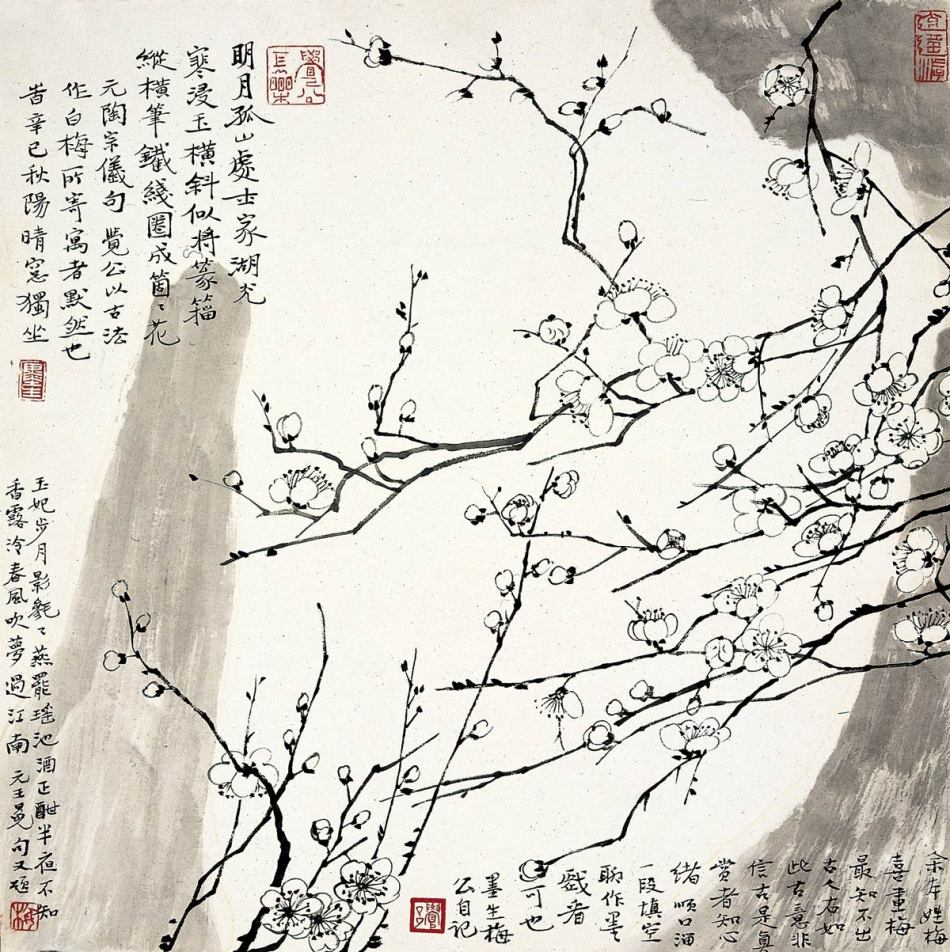 明月孤山處士家湖光
寒浸玉橫斜似將篆籀
縱橫筆鐵綫圈成箇〻花
元陶宗儀句 覺公以古法
作白梅所寄寓者默然也
昔辛巳秋陽晴窓獨坐
玉妃步月影毿〻燕罷瑤池酒正酣半夜不知
香露冷春風吹夢過江南 元王冕句又題
余本姓梅
喜畫梅
最知不出
古人右如
此古意非
信古是真
賞者知心
緒順口
一段填空
聊作墨
戲者
可也
墨生梅
公自記